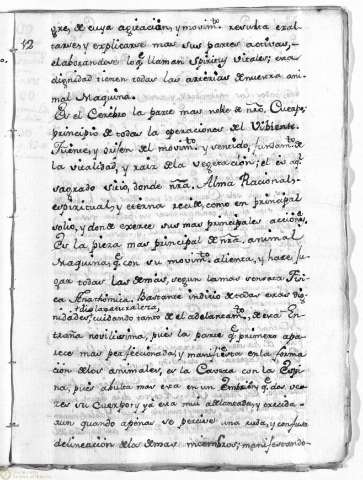 gre, de cuya agitacion, y movim.to resulta exal
12
tarse, y explicarse mas sus partes activas,
elaborandose lo q.e llaman Spiritus vitales; esta
dignidad tienen todas las arterias de nuestra ani
mal Maquina.
Es el Cerebro la parte mas noble de nro. Cuerpo,
principio de todas la operaciones del Vibiente.
Fuente, y origen de movim.to y sentido, fundam.to de
la vitalidad, y raiz de la vegetacion; el es aq.l
sagrado sitio, donde nra. Alma Racional
espiritual, y eterna recide, como en principal
solio, y donde exerce sus mas principales accion.s
Es la pieza mas principal de nra. animal
Maquina, q.e con su movim.to alienta, y hace ju
gar todas las demas, segun la mas sensata Fisi
ca Anathomica. Bastante indicio de todas estas dig
nidades, cuidando tanto de el adelantam.to de esta En
dio la naturaleza,
traña novilissima, pues la parte q.e primero apa
rece mas perfeccionada, y manifiesta en la forma
cion de los animales, es la Caveza con la Espi
na, pues abulta mas esta en un Embrion, q.e dos ve
zes su Cuerpo; y ya esta mui adelantada, y crecida
aun quando apenas se percive una ruda, y confusa
delineacion de los demas miembros; manifestando